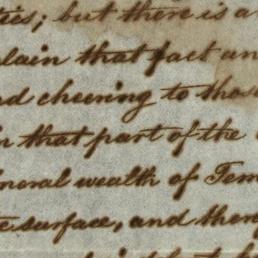 ties; but there is a
plain that fact an
d cheering to thos
n that part of the
neral wealth of Ten
e surface, and ther